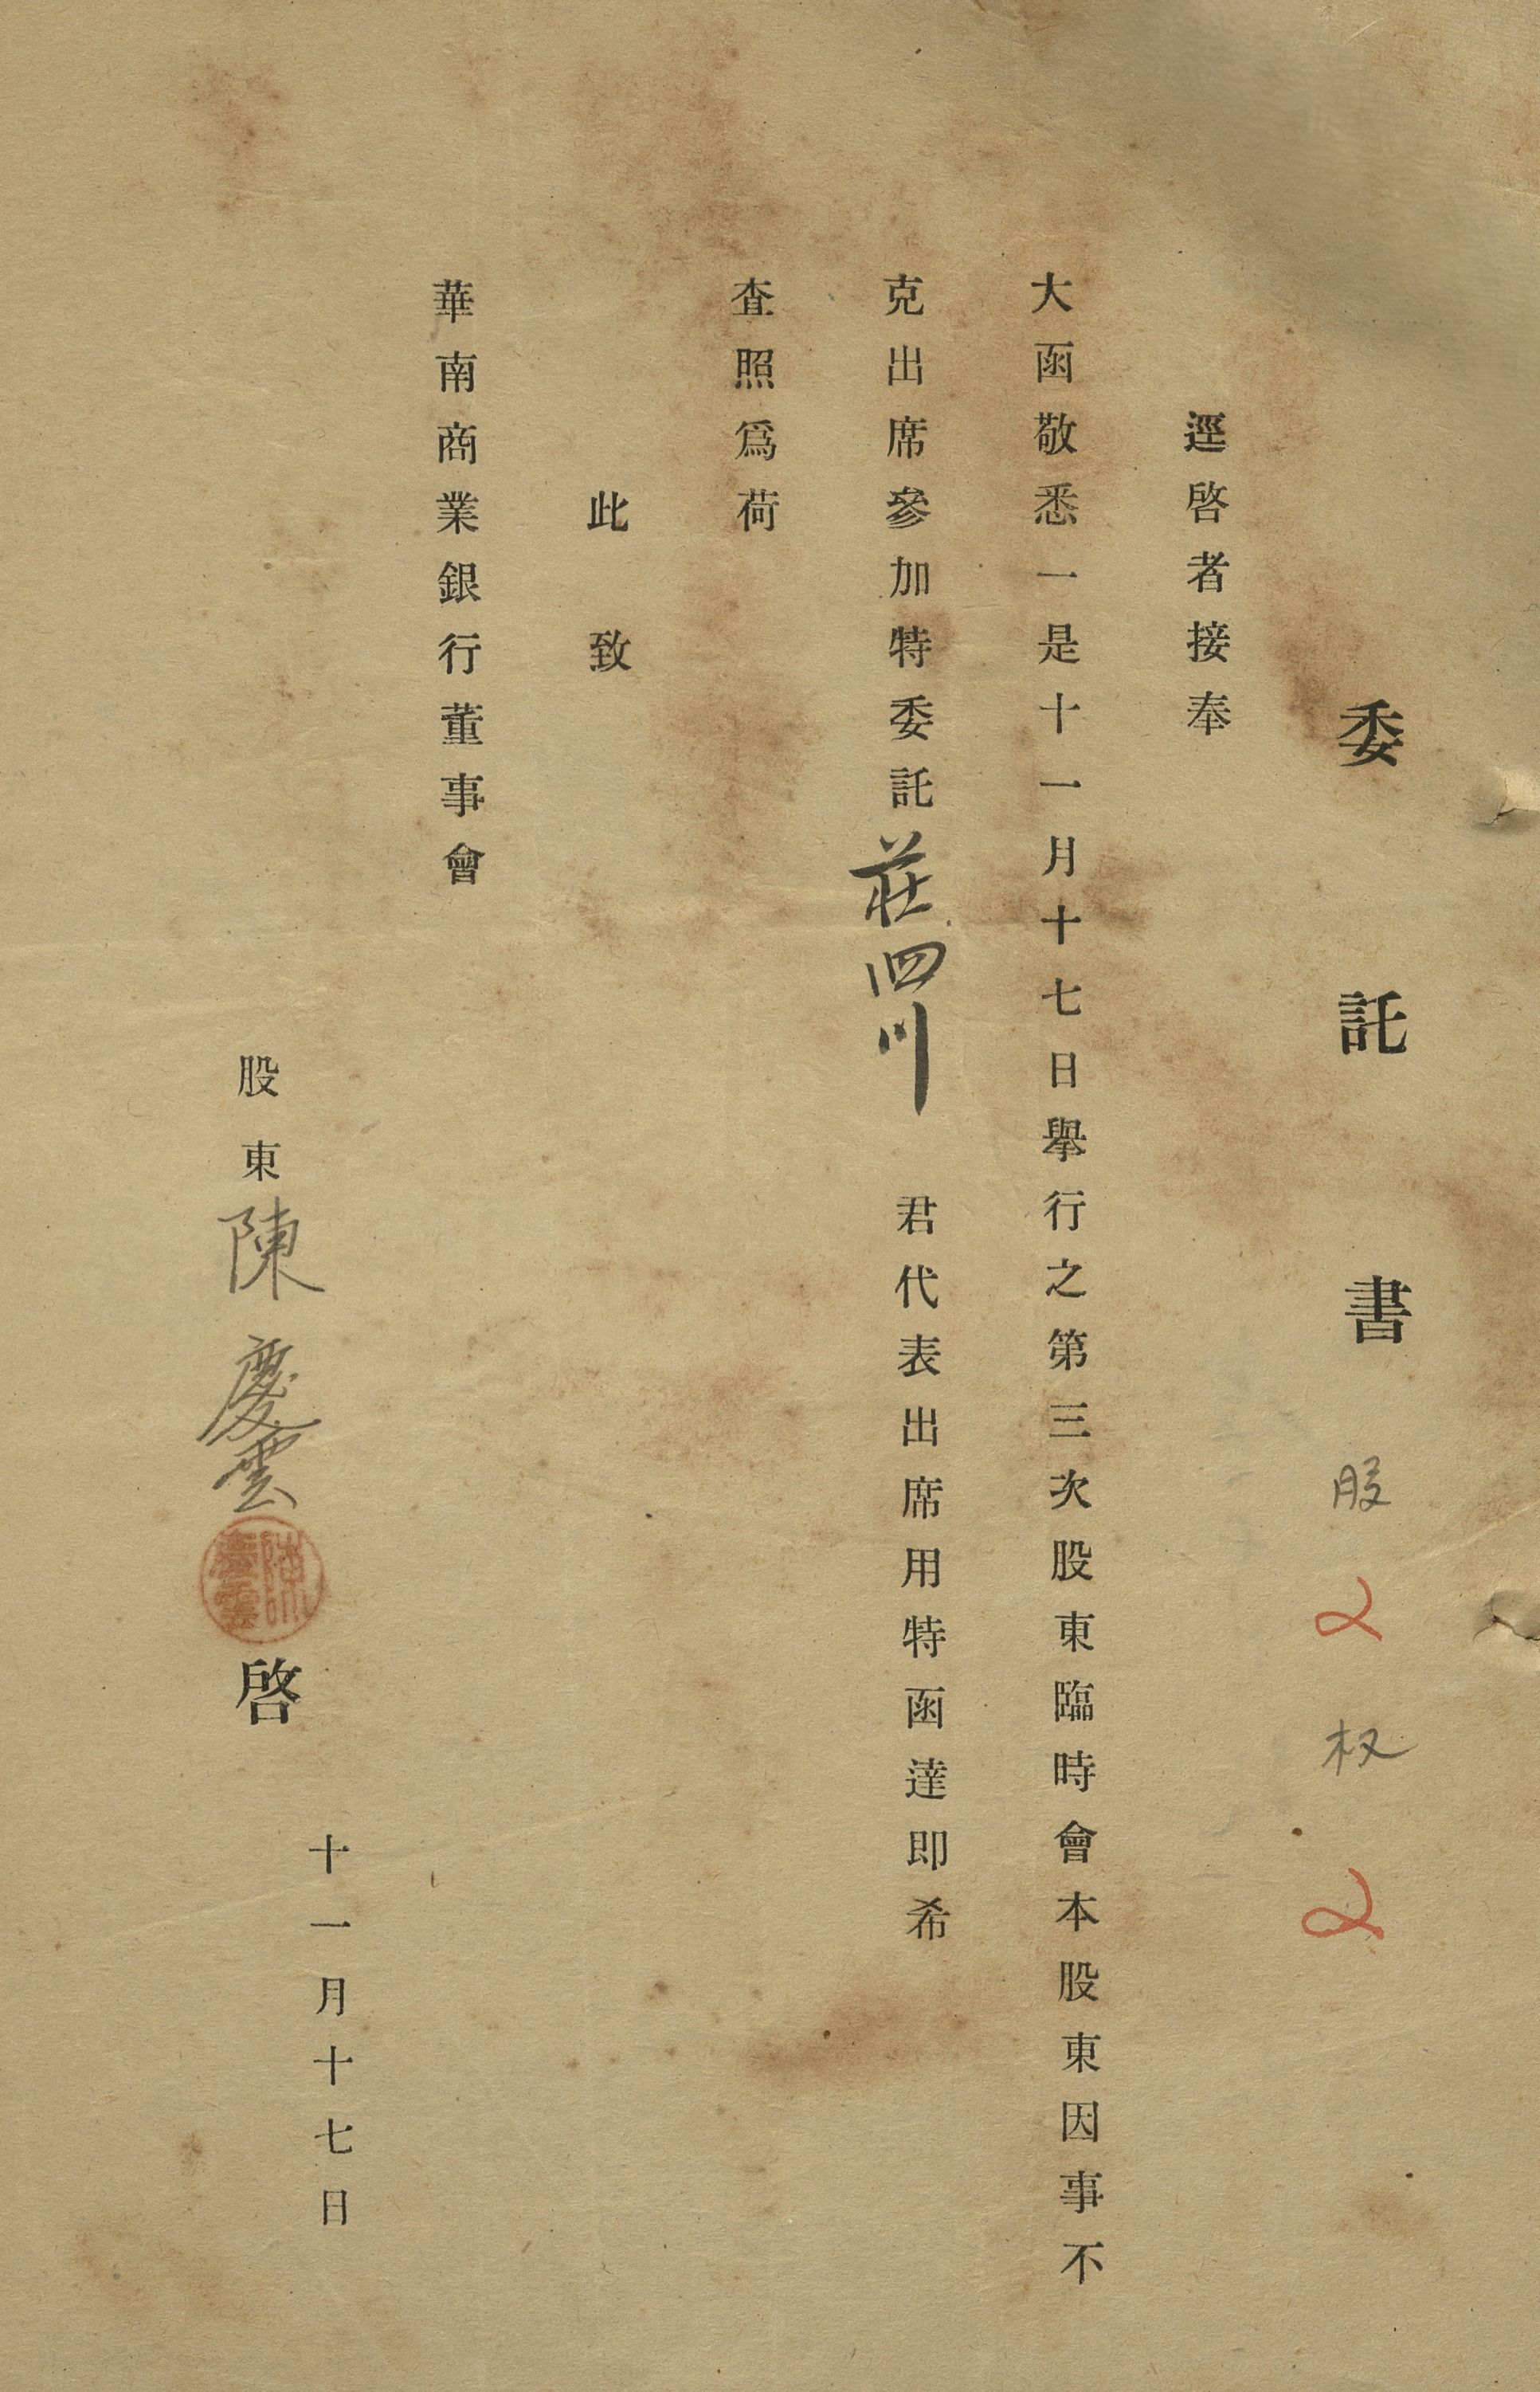 委託書 股 2 权 2
逕啓者接奉
大函敬悉一是十一月十七日舉行之第三次股東臨時會本股東因事不
克出席參加特委託莊四川 君代表出席用特函達即希
査照爲荷
此致
華南商業銀行董事會
十一月十七日
股東陳慶雲啓
陳慶雲